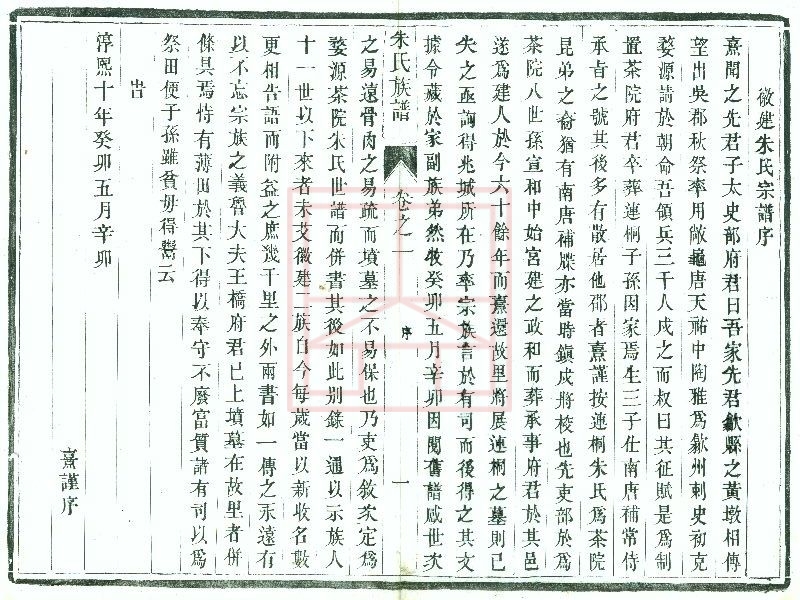 徽建朱氏宗譜序
熹聞之先君子太史部府君曰吾家先君歙縣之黃墩相傳
望出吳郡秋祭率用 唐天祐中陶雅為歙州刺史初克
婺源請於朝命吾領兵三千人戍之而叔曰其征賦是為制
置茶院府君卒葬連桐子孫因家焉生三子仕南唐補常侍
承旨之號其後多有散居他郡者熹謹按連桐朱氏為茶院
昆弟之裔猶有南唐補牒亦當時鎭戍將校也先吏部於為
茶院八世孫宣和中始宮建之政和而葬承事府君於其邑
遂為建人於今六十餘年而熹還故里將展連桐之墓則已
失之亟詢得兆域所在乃率宗族言於有司而後得之其文
據令藏於家副族弟然 癸卯五月辛卯因閱舊譜感世次
朱氏族譜
卷之一
序
一
之易遠骨肉之易疏而墳墓之不易保也乃更為敘次定為
婺源茶院朱氏世譜而併書其後如此别錄一通以示族人
十一世以下來者未艾徽建二族自今每歲當以新收名數
更相告語而附益之庶幾千里之外兩書如一傳之永遠有
以不忘宗族之義魯大夫王橋府君已上墳墓在故里者併
條具焉特有薄田於其下得以奉守不廢富質諸有司以為
祭田使子孫雖貧毋得鬻云
旹
淳熙十年癸卯五月辛卯
熹謹序